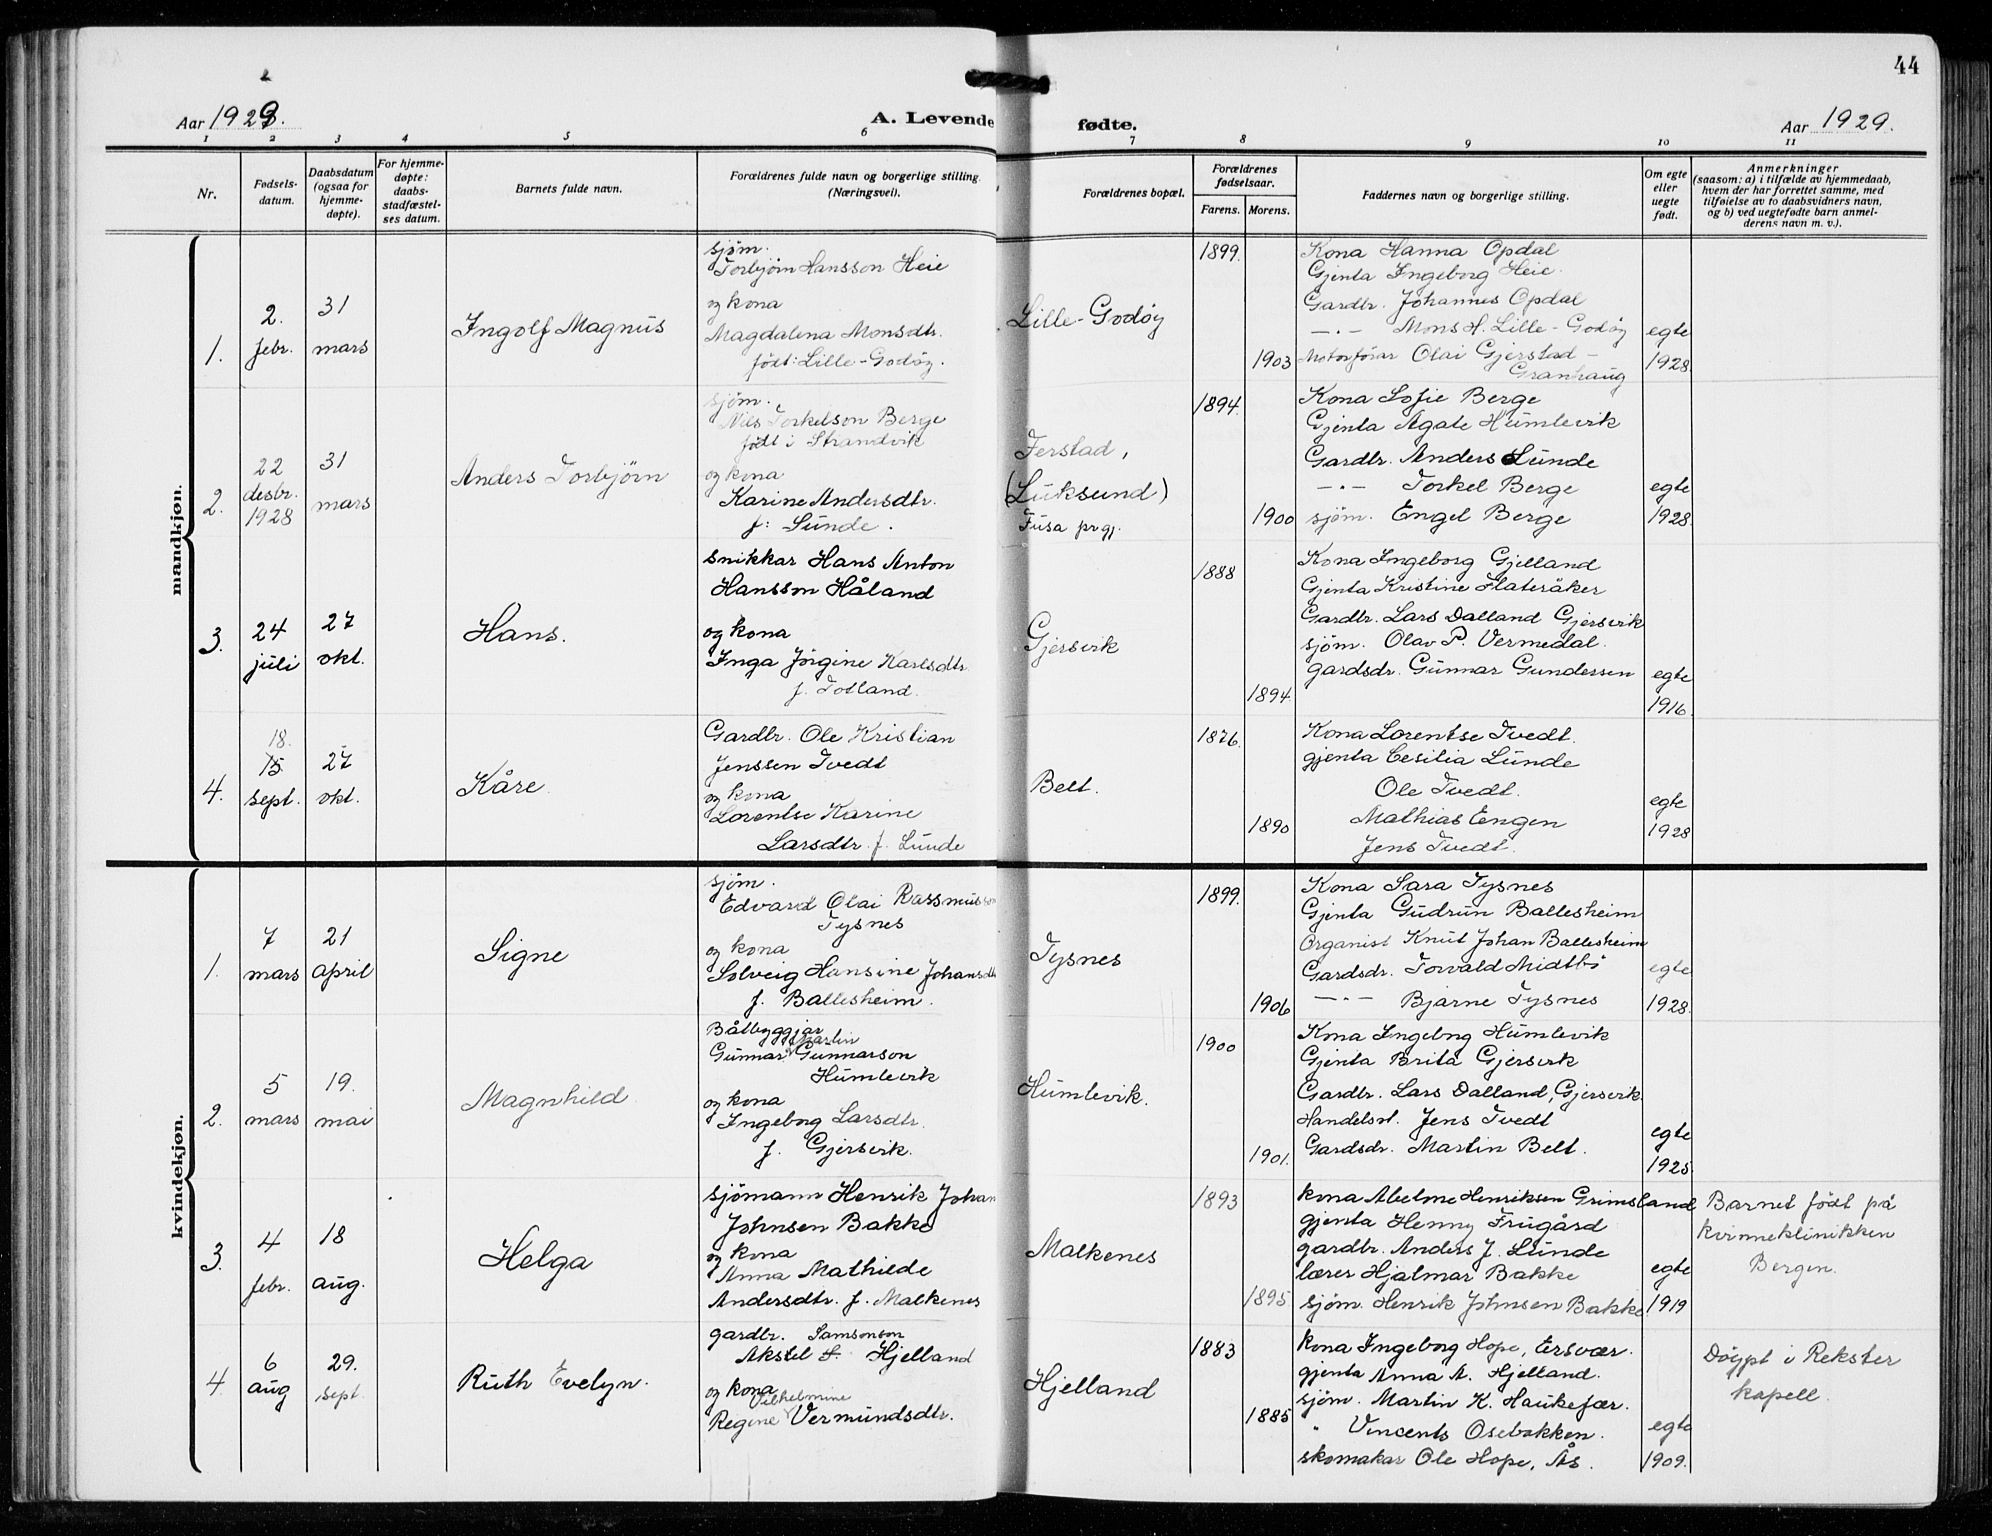 44
Aar 1929.
A. Levende fødte.
Aar 1929.
1 2 3 4 5 6 7 8 9 10 11
Nr.
Fødsels-
datum.
Daabsdatum
(ogsaa for
hjemme-
døpte).
For hjemme-
døpte:
daabs-
stadfæstel-
ses datum.
Barnets fulde navn.
Forældrenes fulde navn og borgerlige stilling.
(Næringsvei).
Forældrenes bopæl.
Forældrenes
fødselsaar.
Farens. Morens.
Faddernes navn og borgerlige stilling.
Om egte
eller
uegte
født.
Anmerkninger
(saasom: a) i tilfælde av hjemmedaab,
hvem der har forrettet samme, med
tilføielse av to daabsvidners navn,
og b) ved uegtefødte barn anmel-
derens navn m. v.).
mandkjøn.
1.
2.
febr.
31
mars
Ingolf Magnus
sjøm.
Torbjørn Hansson Heie
og kona
Magdalena Monsdtr.
født: Lille-Godøy.
Lille-Godøy
1899.
1903
Kona Hanna Opdal
Gjenta Ingeborg Heie.
Gardbr. Johannes Opdal
—·— Mons H. Lille-Godøy
Motorførar Olai Gjerstad-
Granhaug
egte
1928.
2.
22
desbr.
1928
31
mars
Anders Torbjørn
sjøm.
Nils Torkelson Berge
født i Strandvik
og kona
Karine Andersdtr.
f: Lunde.
Ferstad,
(Luksund)
Fusa prgj.
1894.
1900
Kona Sofie Berge
Gjenta Agate Humlevik
Gardbr. Anders Lunde
—·— Torkel Berge
sjøm. Engel Berge
egte
1928.
3.
24
juli
27
okt.
Hans.
snikkar Hans Anton
Hansson Håland
og kona
Inga Jørgine Karlsdtr.
f. Totland.
Gjersvik
1888
1894.
Kona Ingeborg Gjelland
Gjenta Kristine Flateråker
Gardbr. Lars Dalland Gjersvik
sjøm. Olav P. Vermedal.
gardsdr. Gunnar Gundersen
egte
1916.
4.
18.
15
sept.
27
okt.
Kåre
Gardbr. Ole Kristian
Jenssen Tvedt
og kona
Lorentse Karine
Larsdtr. f. Lunde
Belt.
1876.
1890
Kona Lorentse Tvedt.
gjenta Cesilia Lunde
Ole Tvedt.
Mathias Engen
Jens Tvedt.
egte
1928
kvindekjøn.
1.
7
mars
21
april
Signe
sjøm.
Edvard Olai Rassmusson
Tysnes
og kona
Solveig Hansine Johansdtr
f. Ballesheim.
Tysnes
1899.
1906
Kona Sara Tysnes
Gjenta Gudrun Ballesheim
Organist Knut Johan Ballesheim
Gardsdr. Torvald Midtbø
—·— Bjarne Tysnes
egte
1928.
2.
5
mars
19.
mai
Magnhild
Båtbyggjar
Martin
Gunnar Gunnarson
Humlevik
og kona
Ingeborg Larsdtr.
f. Gjersvik.
Humlevik.
1900
1901.
Kona Ingebrg Humlevik
Gjenta Brita Gjersvik
Gardbr. Lars Dalland, Gjersvik
Handelsm. Jens Tvedt
Gardsdr. Martin Belt.
egte
1925.
3.
4
febr.
18
aug.
Helga
sjømann Henrik Johan
Johnsen Bakke
og kona
Anna Mathilde
Andersdtr. f. Malkenes
Malkenes
1893
1895
kona Abelme Henriksen Grimsland
gjenta Henny Frugård
gardbr. Anders J. Lunde
lærer Hjalmar Bakke
sjøm. Henrik Johnsen Bakke
egte
1919
Barnet født på
kvinneklinikken
Bergen.
4.
6
aug
29.
sept.
Ruth Evelyn.
gardbr. Samsonson
Aksel S. Hjelland
og kona
Vilhelmine
Regine Vermundsdtr.
Hjelland
1883
1885
kona Ingeborg Hope, Ersvær.
gjenta Anna A. Hjelland.
sjøm. Martin K. Haukefær.
" Vincents Osebakken.
skomakar Ole Hope, Ås.
egte
1909.
Døypt i Rekster
kapell.